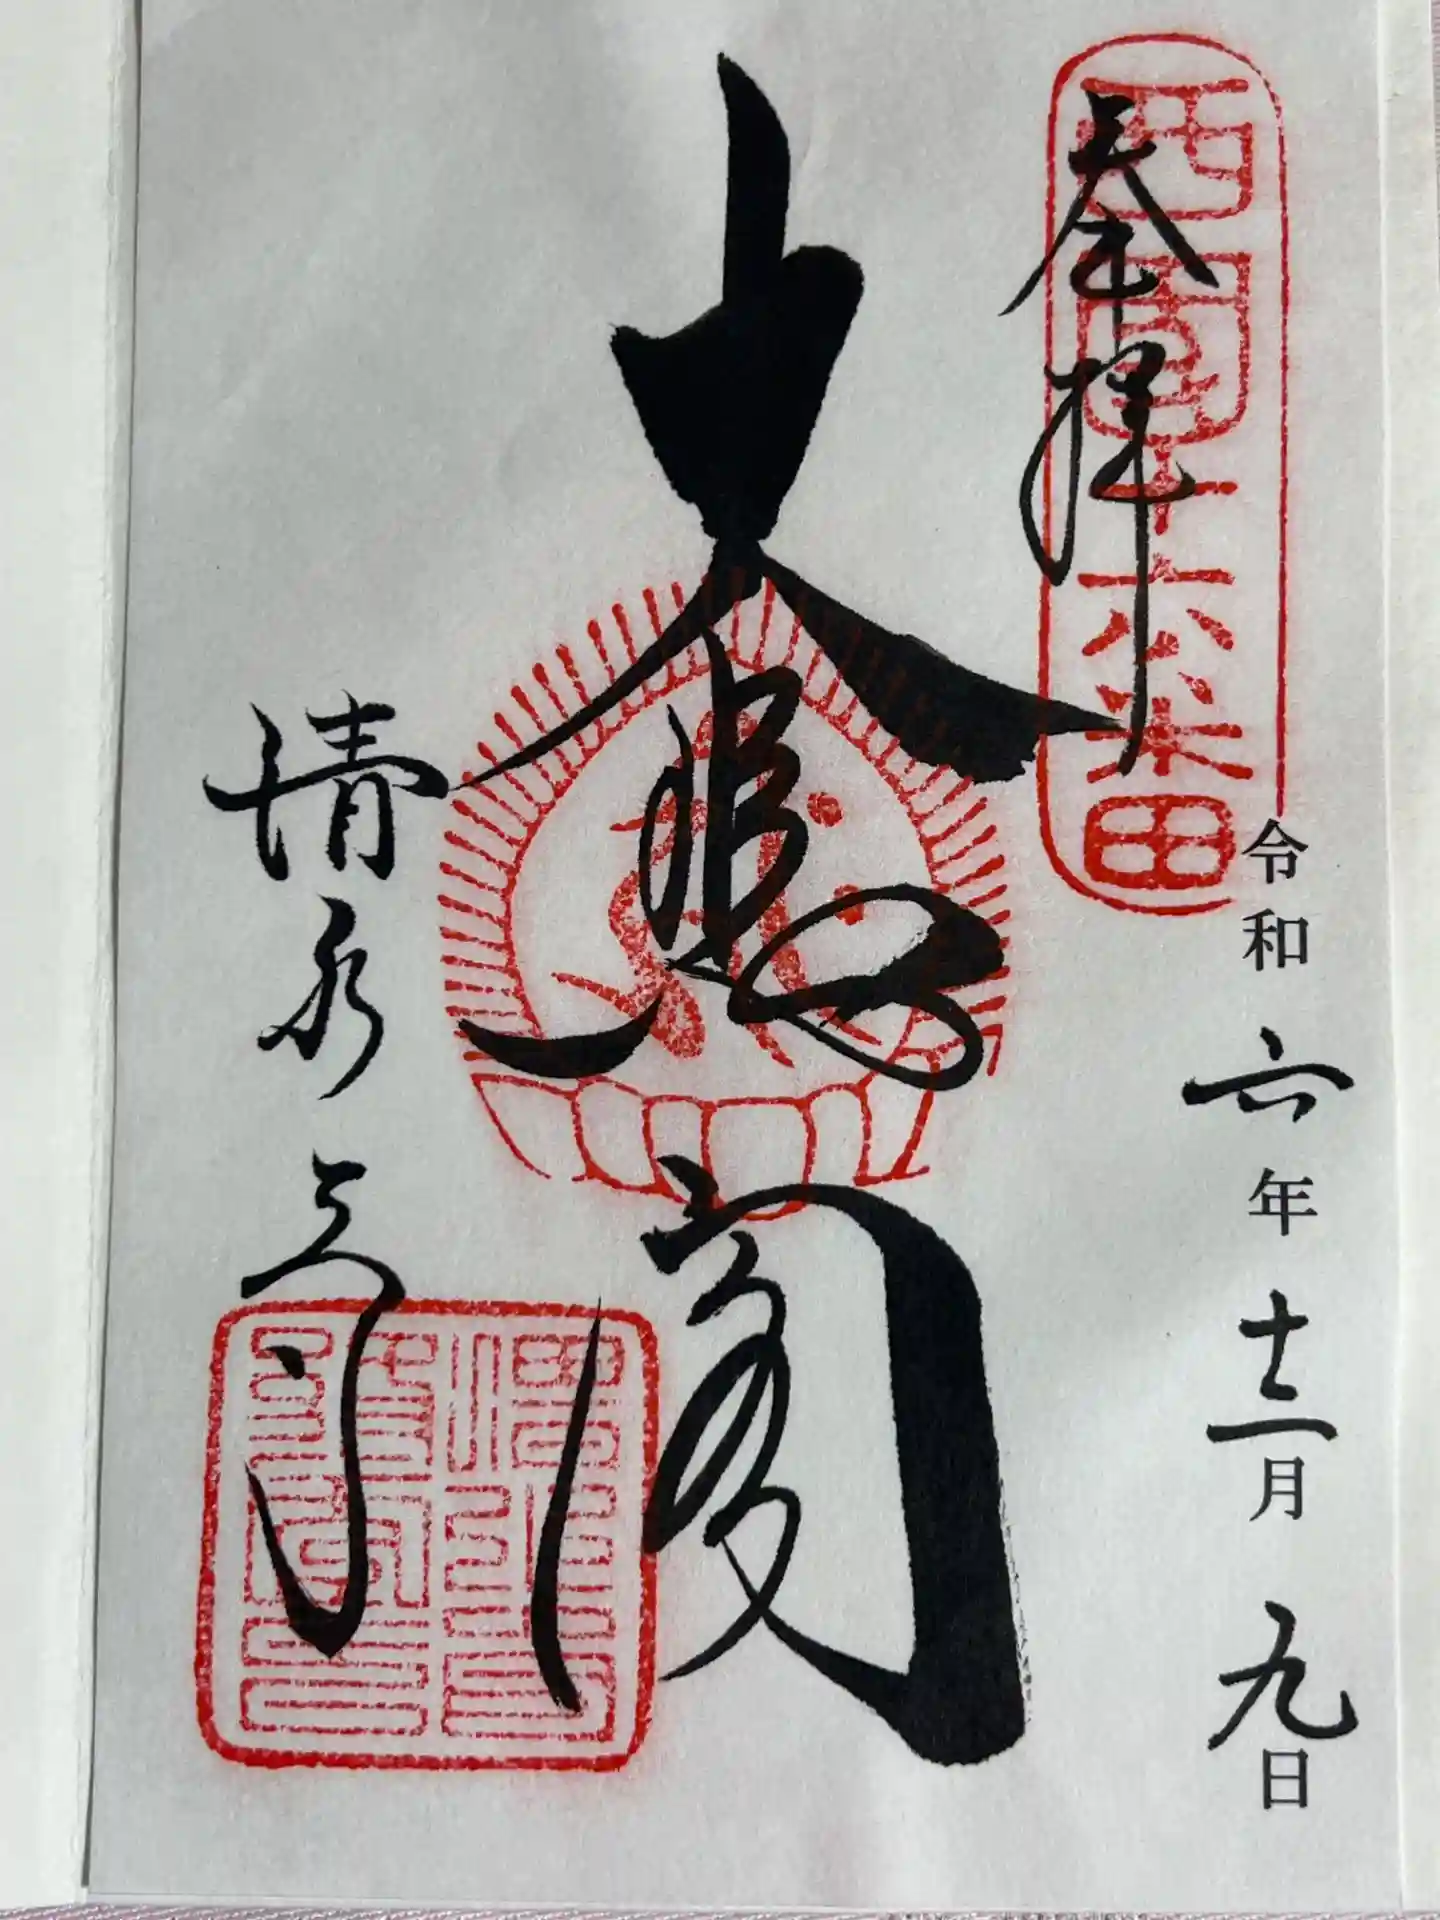 西國十六番
奉拝
令和六年十二月九日
大悲閣
清水寺